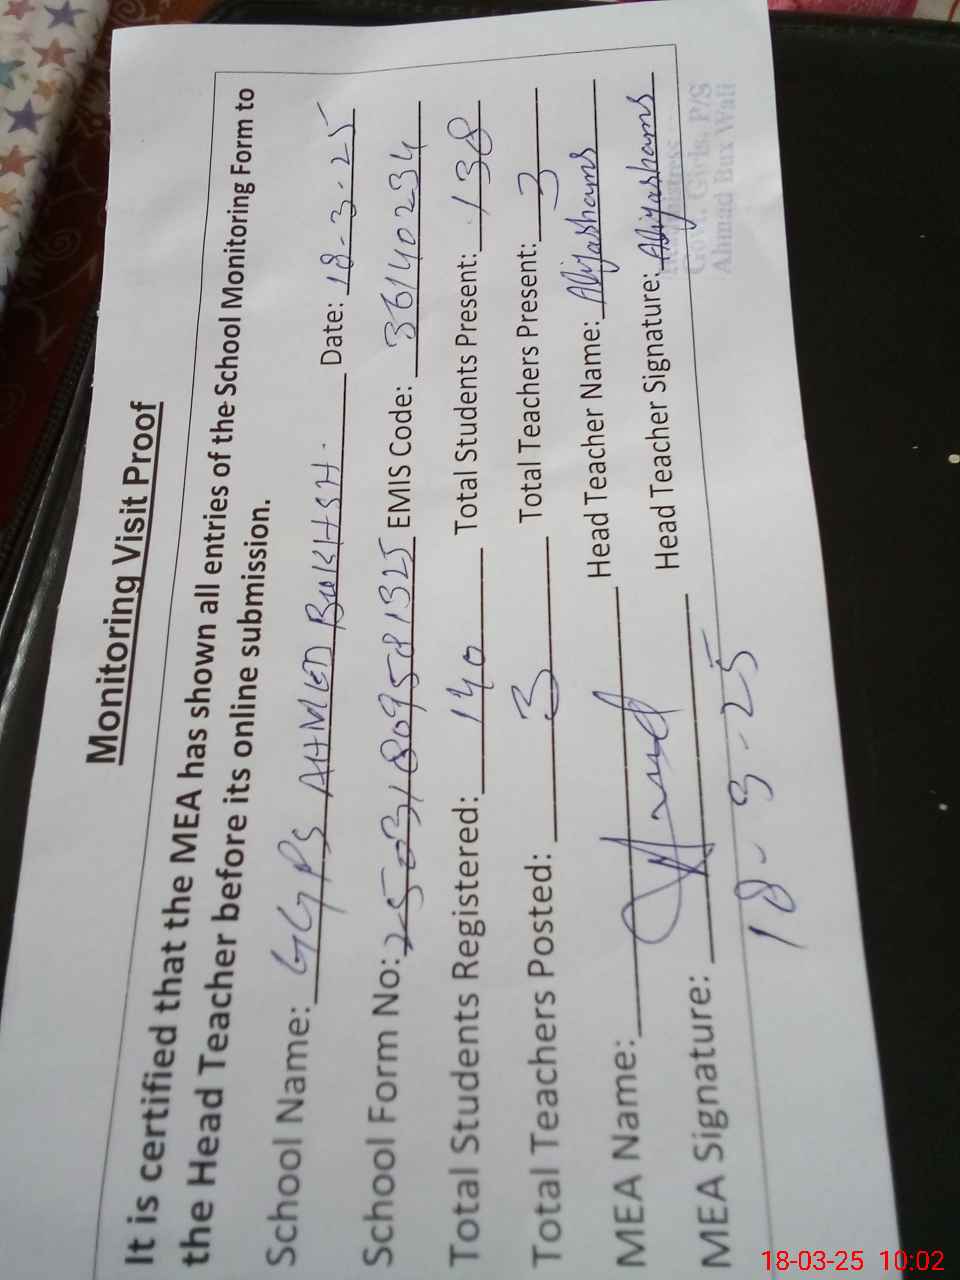 Monitoring Visit Proof
It is certified that the MEA has shown all entries of the School Monitoring Form to
the Head Teacher before its online submission.
School Name: GGPS AHMED BUKHSH. Date: 18-3-25
School Form No: EMIS Code: 36140234
Total Students Registered: 140 Total Students Present: 138
Total Teachers Posted: 3 Total Teachers Present: 3
MEA Name: Head Teacher Name: Aliyashams
MEA Signature: Head Teacher Signature: Aliyashams
18-3-25
Govt. Girls. P/S
Ahmad Bux Wali
18-03-25 10:02